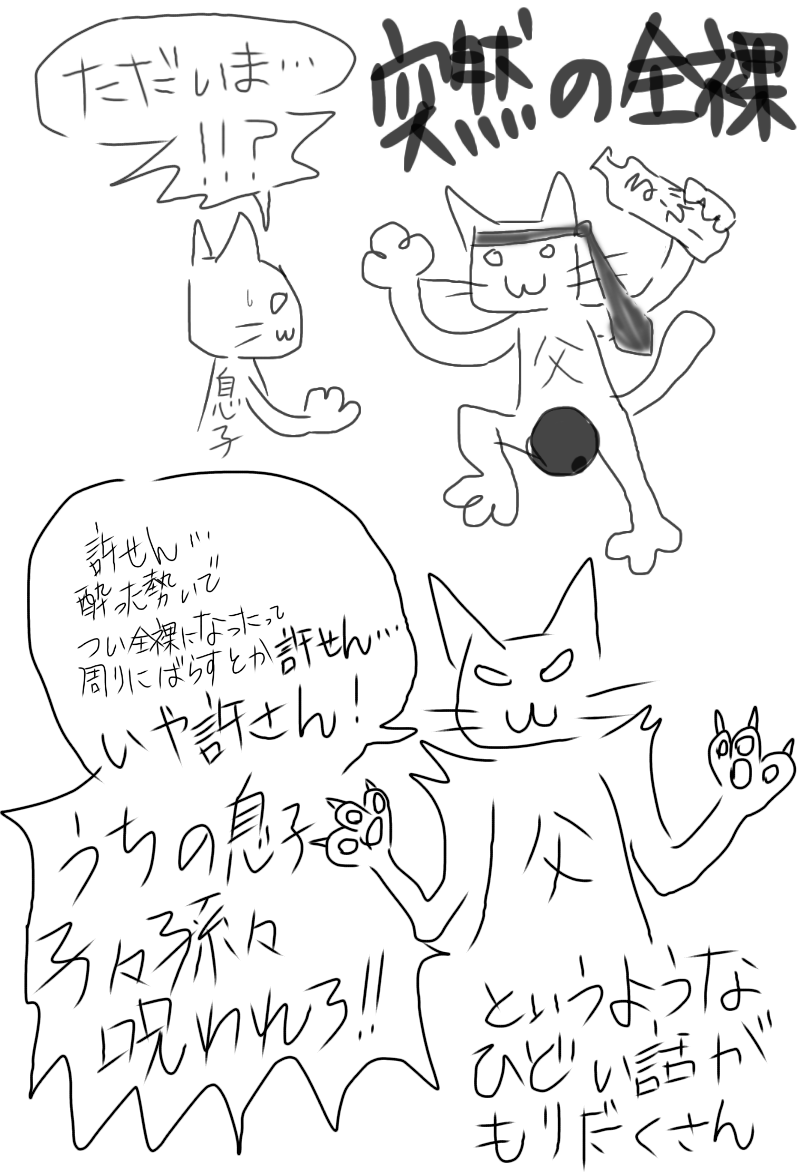 突然の全裸
ただいま…
!!?
息子
父
許せん…
酔った勢いで
つい全裸になったって
周りにばらすとか許せん…
いや許さん!
うちの息子
子々孫々
呪われろ!!
父
というような
ひどい話が
もりだくさん